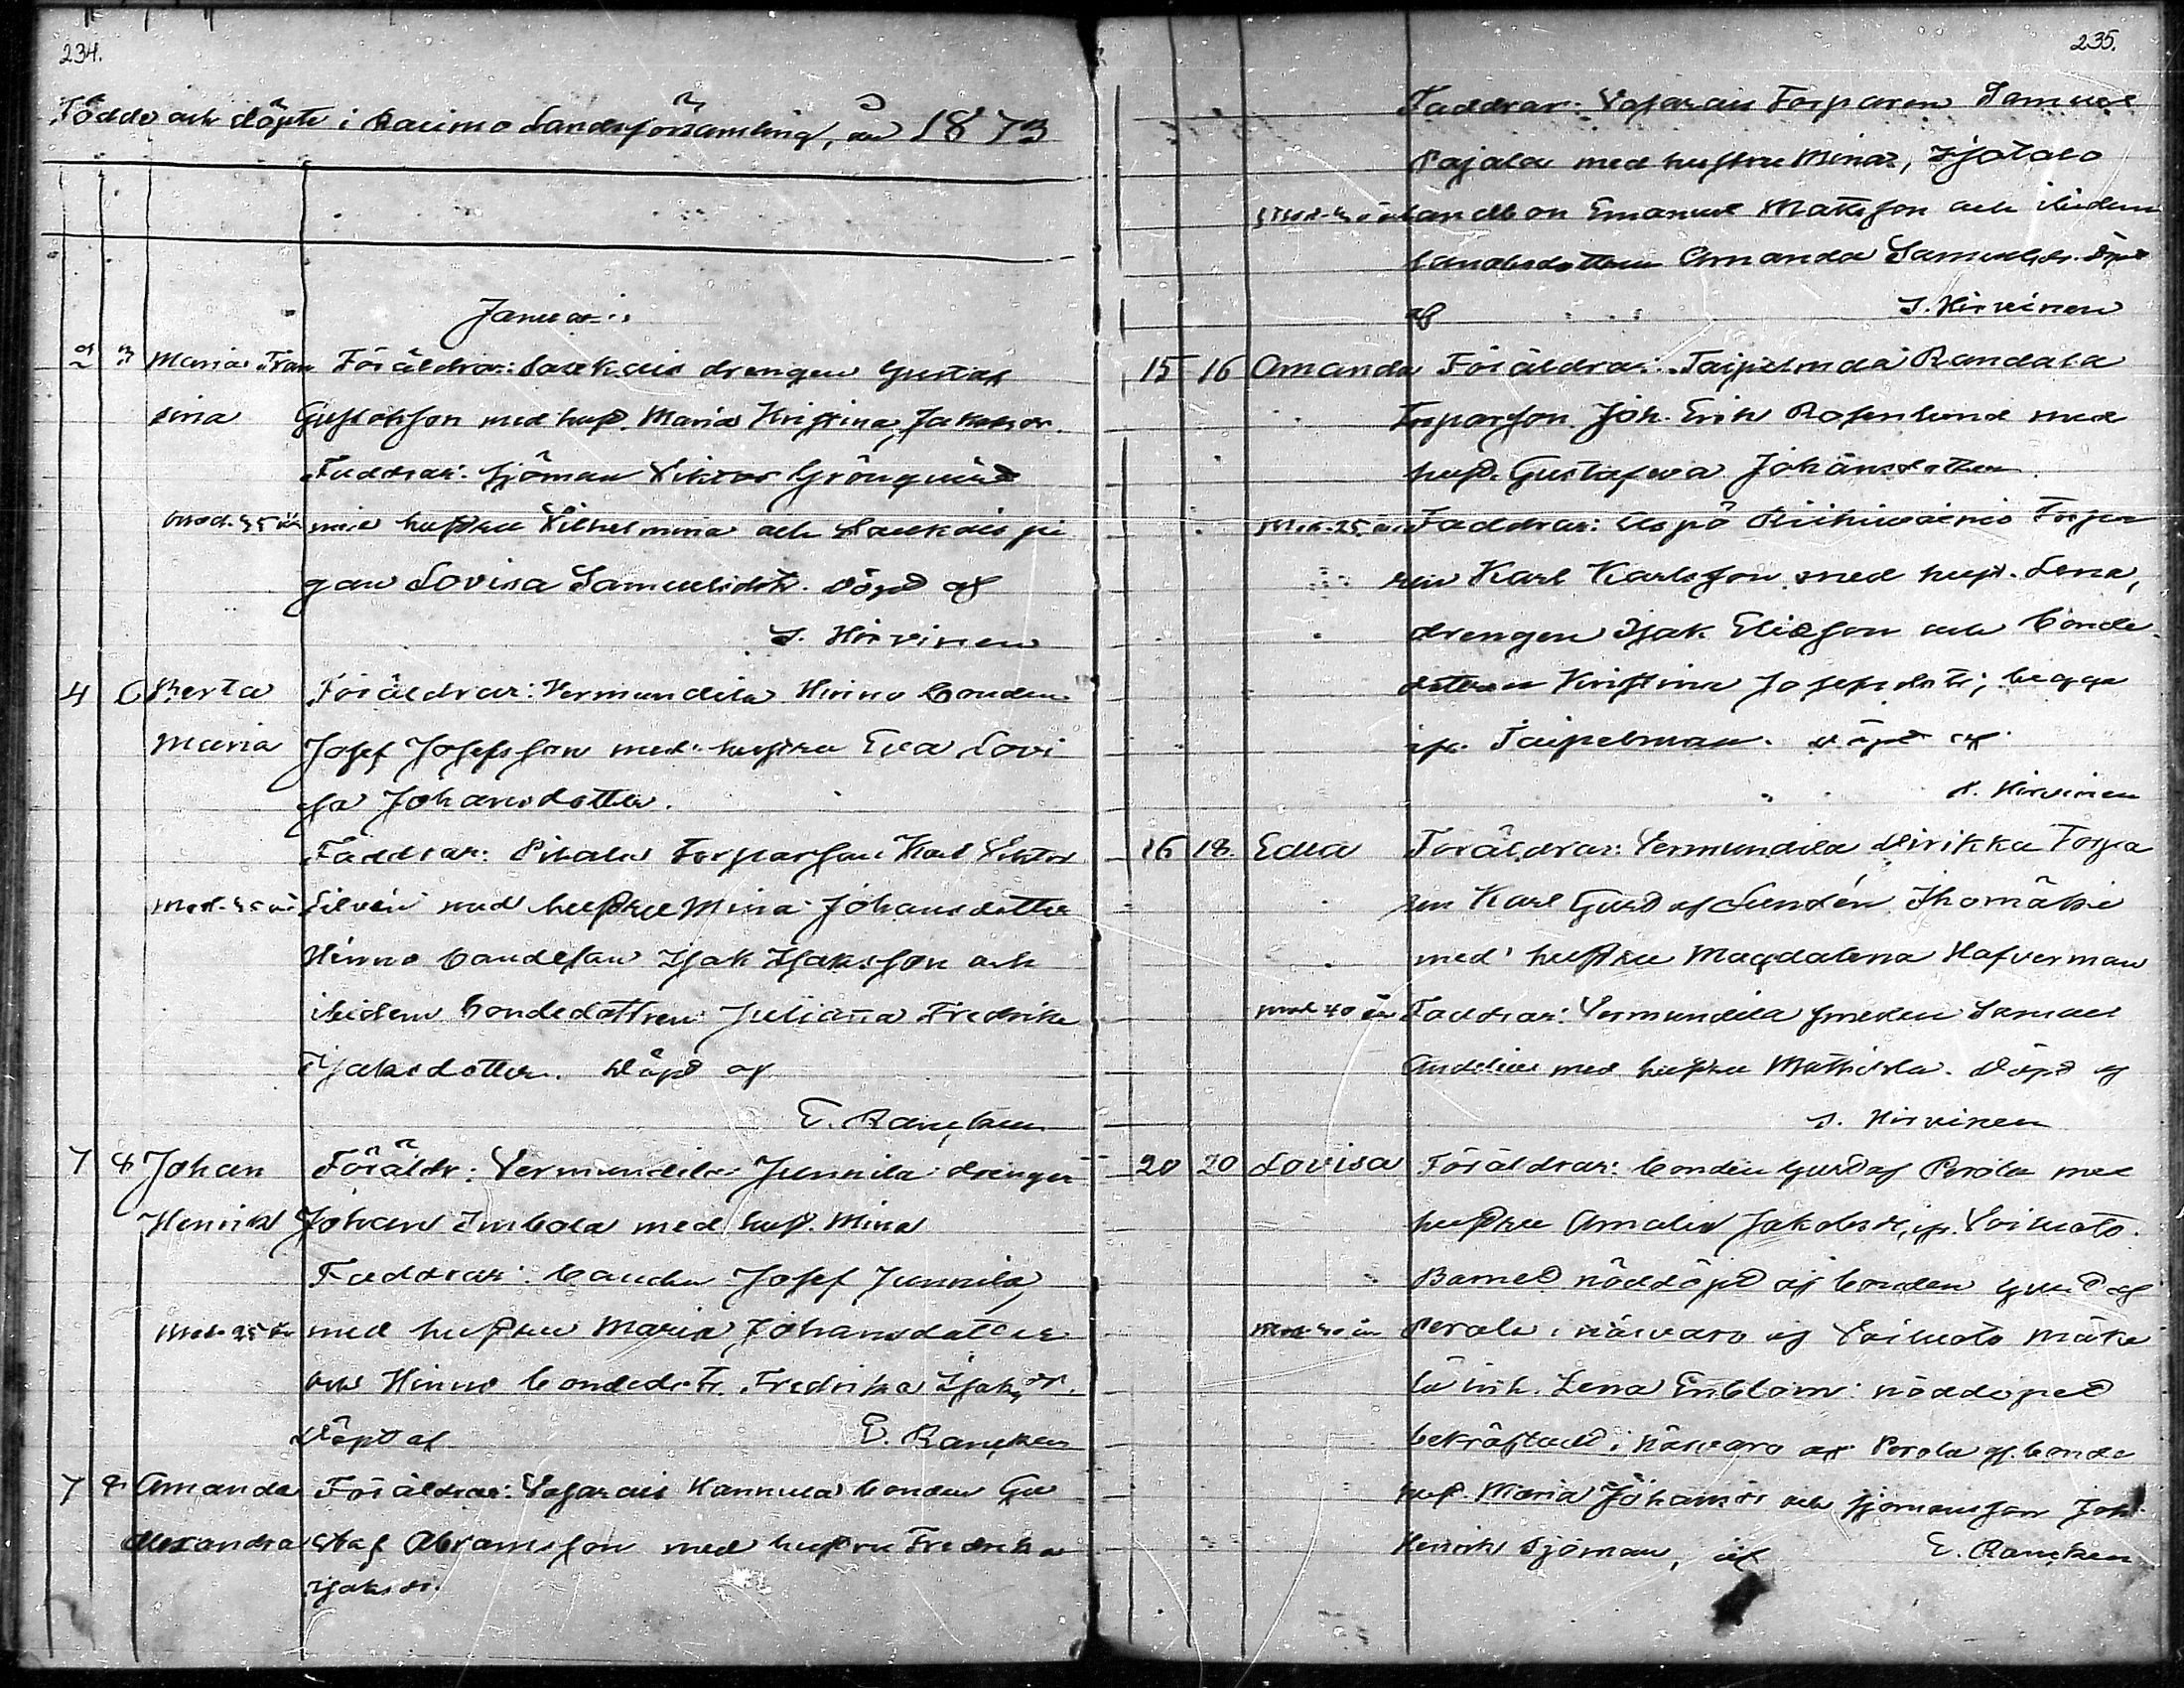 234.
Födde och döpte i Raumo Landsförsamling, år 1873
Januari
2 3 Maria Fran Föräldrar: drengen Gustaf
sina Gustafsson med hust. Maria Kristina Jakobsdr.
Faddrar: Sjöman Viktor Grönqvist
Mod. 35 år med hustru Vilhelmina och pi
gan Lovisa Samuelsdtr. Döpt af
S. Hirvinen
4 6 Berta Föräldrar: Vermundila Hinno bonden
Maria Josef Josefsson med hustru Eva Lovi
sa Johansdotter.
Faddrar: Torparson Karl Viktor
Silvén med hustru Mina Johansdotter
Hinno bondeson Isak Isaksson och
ibidem bondedottren Juliana Fredrika
Isaksdotter. Döpt af
E. Rancken
7 8 Johan Föräldr: Vermundila Junnila drengen
Henrik Johan Imbola med hust. Mina
Faddrar: bonden Josef Junnila
Mod. 25 år med hustru Maria Johansdotter
och Hinno bondedotr. Fredrika Isaksdr.
Döpt af E. Rancken
7 8 Amanda Föräldrar: Vasarais Hannula bonden Gu
Alexandra staf Abramsson med hustru Fredrika
Isaksdr.
235.
Faddrar: Vasarais Torparen Samuel
Pajala med hustru Mina, Isotalo
bondson Emanuel Mattsson och ibidem
bondedottren Amanda Samuelsdr. Döpt
af S. Hirvinen
15 16 Amanda Föräldrar: Taipelmaa Randala
Torparson Joh. Erik Rosenlund med
hust. Gustafva Johansdotter
Mod. 25 år Faddrar: Torpa
ren Karl Karlsson med hust. Lena,
drengen Isak Eliasson och bonde
dottren Kristina Josefsdotr; begge
ifr. Taipelmaa. Döpt af
S. Hirvinen
16 18. Edla Föräldrar: Vermundila Torpa
ren Karl Gustaf Lundén
med hustru Magdalena Hafverman
Mod 40 år Faddrar: Vermundila smeden Samuel
Andelin med hustru Mathilda. Döpt af
S. Hirvinen
20 20 Lovisa Föräldrar: bonden Gustaf Perola med
hustru Amalia Jakobsdr, ifr. Voiluoto.
Barnet nöddöpt af bonden Gustaf
Mod. 40 år Perola i närvaro af Voiluoto
ink. Lena Enblom: nöddopet
bekräftadt i närvaro af Perola gl. bonde
hust. Maria Johansdr och sjömansson Joh.
Henrik Sjöman, af E. Rancken